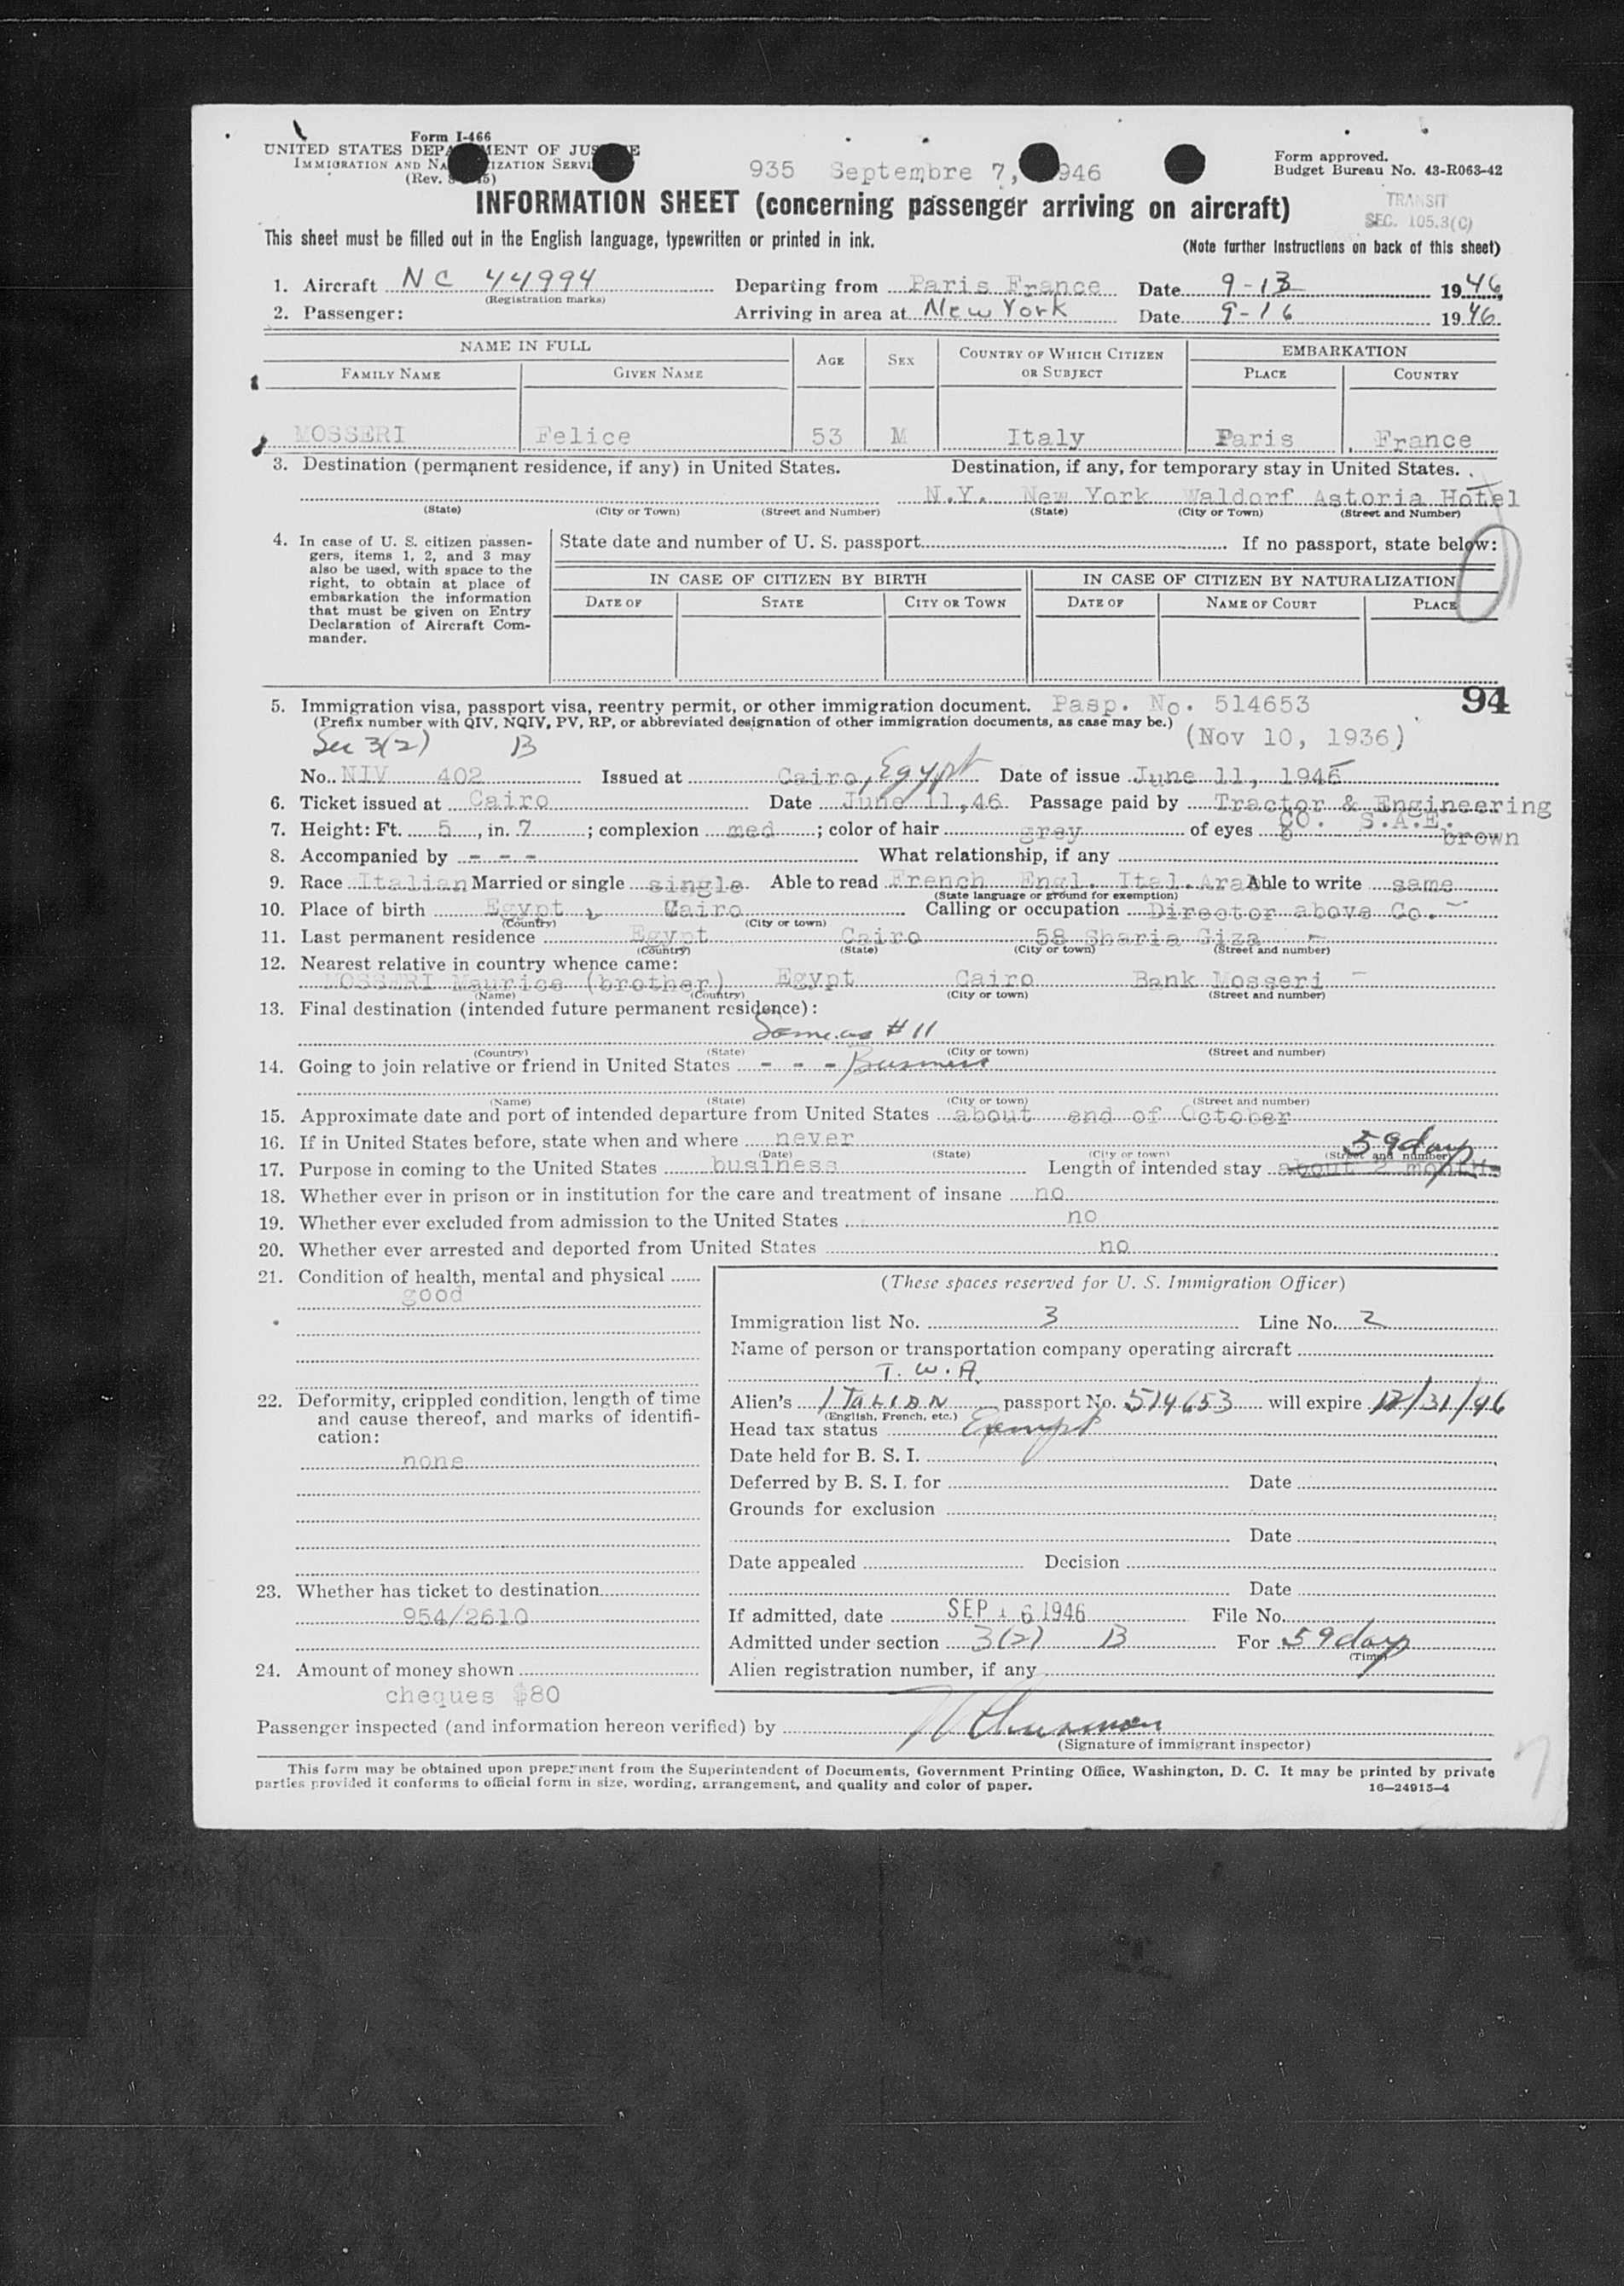 Form I-466
UNITED STATES DEPARTMENT OF JUSTICE
IMMIGRATION AND NATURALIZATION SERVICE
(Rev.
935 Septembre 7, 1946
Form approved.
Budget Bureau No. 43-R063-42
INFORMATION SHEET (concerning passenger arriving on aircraft)
TRANSIT
SEC. 105.3(C)
This sheet must be filled out in the English language, typewritten or printed in ink.
(Note further instructions on back of this sheet)
1. Aircraft NC 44994 Departing from Paris France Date 9-13 1946
(Registration marks)
2. Passenger: Arriving in area at New York Date 9-16 1946
NAME IN FULL AGE SEX COUNTRY OF WHICH CITIZEN OR SUBJECT EMBARKATION
FAMILY NAME GIVEN NAME PLACE COUNTRY
MOSSERI Felice 53 M Italy Paris France
3. Destination (permanent residence, if any) in United States. Destination, if any, for temporary stay in United States.
N.Y. New York Waldorf Astoria Hotel
(State) (City or Town) (Street and Number) (State) (City or Town) (Street and Number)
4. In case of U. S. citizen passengers, items 1, 2, and 3 may also be used, with space to the right, to obtain at place of embarkation the information that must be given on Entry Declaration of Aircraft Commander.
State date and number of U. S. passport If no passport, state below:
IN CASE OF CITIZEN BY BIRTH IN CASE OF CITIZEN BY NATURALIZATION
DATE OF STATE CITY OR TOWN DATE OF NAME OF COURT PLACE
94
5. Immigration visa, passport visa, reentry permit, or other immigration document. Pasp. No. 514653
(Prefix number with QIV, NQIV, PV, RP, or abbreviated designation of other immigration documents, as case may be.)
Sec 3(2) B (Nov 10, 1936)
No. NIV 402 Issued at Cairo, Egypt Date of issue June 11, 1946
6. Ticket issued at Cairo Date June 11,46 Passage paid by Tractor & Engineering
CO. S.A.E.
7. Height: Ft. 5, in. 7; complexion med; color of hair grey of eyes brown
8. Accompanied by - - - What relationship, if any
9. Race Italian Married or single single Able to read French Engl. Ital. Arab Able to write same
(State language or ground for exemption)
10. Place of birth Egypt, Cairo Calling or occupation Director above Co.
(Country) (City or town)
11. Last permanent residence Egypt Cairo 58 Sharia Giza
(Country) (State) (City or town) (Street and number)
12. Nearest relative in country whence came:
MOSSERI Maurice (brother) Egypt Cairo Bank Mosseri
(Name) (Country) (City or town) (Street and number)
13. Final destination (intended future permanent residence):
Same as #11
(Country) (State) (City or town) (Street and number)
14. Going to join relative or friend in United States - - - Business
(Name) (State) (City or town) (Street and number)
15. Approximate date and port of intended departure from United States about end of October
16. If in United States before, state when and where never
(Date) (State) (City or town) (Street and number)
59 days
17. Purpose in coming to the United States business Length of intended stay about 2 months
18. Whether ever in prison or in institution for the care and treatment of insane no
19. Whether ever excluded from admission to the United States no
20. Whether ever arrested and deported from United States no
21. Condition of health, mental and physical
good
22. Deformity, crippled condition, length of time and cause thereof, and marks of identification:
none
23. Whether has ticket to destination
954/2610
24. Amount of money shown
cheques $80
(These spaces reserved for U. S. Immigration Officer)
Immigration list No. 3 Line No. 2
Name of person or transportation company operating aircraft
T. W. A.
Alien's ITALIAN passport No. 514653 will expire 12/31/46
(English, French, etc.)
Head tax status Exempt
Date held for B. S. I.
Deferred by B. S. I. for Date
Grounds for exclusion
Date
Date appealed Decision
Date
If admitted, date SEP 16 1946 File No.
Admitted under section 3(2) B For 59 days
(Time)
Alien registration number, if any
Passenger inspected (and information hereon verified) by
(Signature of immigrant inspector)
This form may be obtained upon prepayment from the Superintendent of Documents, Government Printing Office, Washington, D. C. It may be printed by private
parties provided it conforms to official form in size, wording, arrangement, and quality and color of paper.
16—24915-4